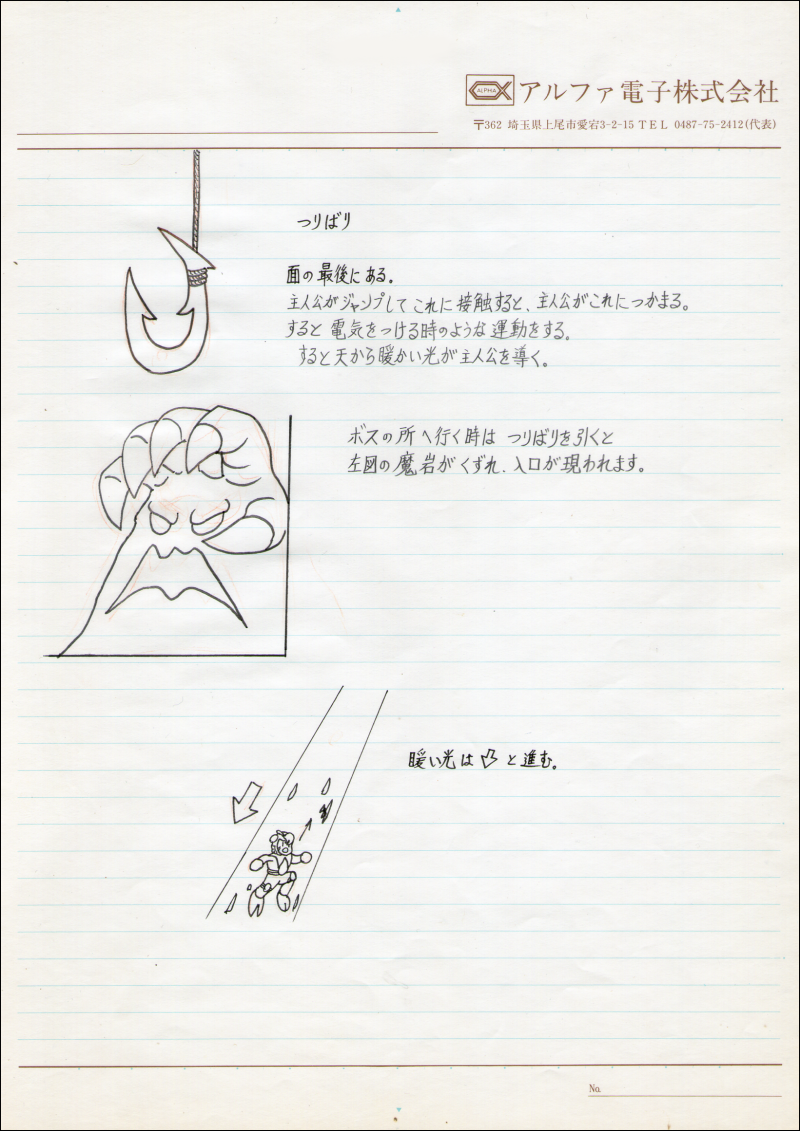 ALPHA アルファ電子株式会社
〒362 埼玉県上尾市愛宕3-2-15 TEL 0487-75-2412(代表)
つりばり
面の最後にある。
主人公がジャンプしてこれに接触すると、主人公がこれにつかまる。
すると電気をつける時のような運動をする。
すると天から暖かい光が主人公を導く。
ボスの所へ行く時は つりばりを引くと
左図の魔岩がくずれ、入口が現われます。
暖い光は と進む。
No.